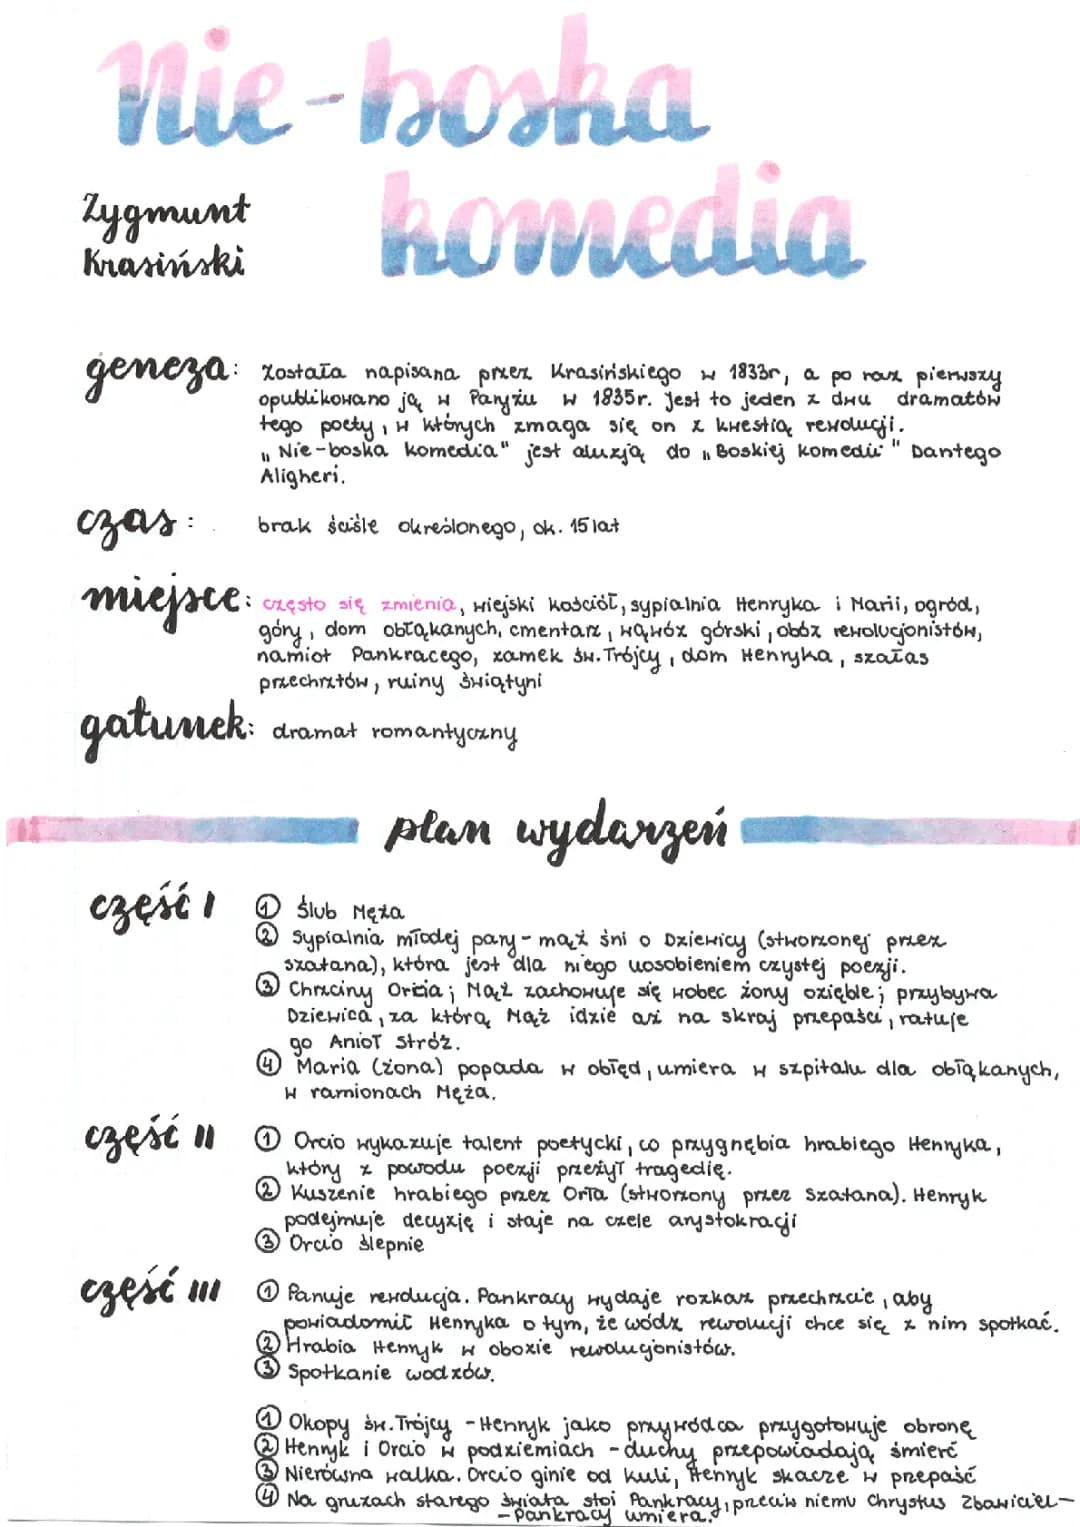 Nie-boska
komedia
Zygmunt
Krasiński
geneza: Została napisana przez Krasińskiego w 1833r, a po raz pierwszy
opublikowano ją w Paryżu w 1835r. Jest to jeden z dwu dramatów
tego poety, w których zmaga się on z kwestią rewolucji.
„Nie-boska komedia" jest aluzją do „Boskiej komedii" Dantego
Aligheri.
czas: brak ściśle określonego, ok. 15 lat
miejsce: często się zmienia, wiejski kościół, sypialnia Henryka i Marii, ogród,
góry, dom obłąkanych, cmentarz, wąwóz górski, obóz rewolucjonistów,
namiot Pankracego, zamek św. Trójcy, dom Henryka, szałas
przechrztów, ruiny świątyni
gatunek: dramat romantyczny
plan wydarzeń
część I ① Ślub Męża
② Sypialnia młodej pary - mąż śni o Dziewicy (stworzonej przez
szatana), która jest dla niego uosobieniem czystej poezji.
③ Chrzciny Orcia; Mąż zachowuje się wobec żony ozięble; przybywa
Dziewica, za którą Mąż idzie aż na skraj przepaści, ratuje
go Anioł Stróż.
④ Maria (żona) popada w obłęd, umiera w szpitalu dla obłąkanych,
w ramionach Męża.
część II ① Orcio wykazuje talent poetycki, co przygnębia hrabiego Henryka,
który z powodu poezji przeżył tragedię.
② Kuszenie hrabiego przez Orła (stworzony przez Szatana). Henryk
podejmuje decyzję i staje na czele arystokracji
③ Orcio ślepnie
część III ① Panuje rewolucja. Pankracy wydaje rozkaz przechrzcie, aby
powiadomił Henryka o tym, że wódz rewolucji chce się z nim spotkać.
② Hrabia Henryk w obozie rewolucjonistów.
③ Spotkanie wodzów.
① Okopy św. Trójcy - Henryk jako przywódca przygotowuje obronę
② Henryk i Orcio w podziemiach - duchy przepowiadają śmierć
③ Nierówna walka. Orcio ginie od kuli, Henryk skacze w przepaść
④ Na gruzach starego świata stoi Pankracy, przeciw niemu Chrystus Zbawiciel-
- Pankracy umiera.